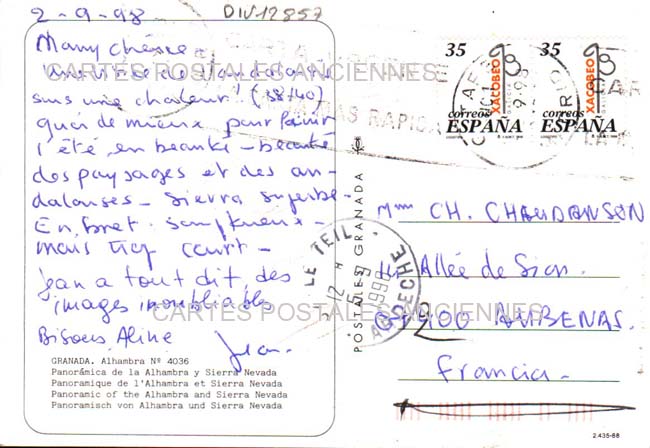 2-9-98
DIV12857
Mamy chérie -
une virée de l'andalousie
sous une chaleur! (38/40)
quoi de mieux pour finir
l'été, en beauté - beauté
des paysages et des an-
dalouses - Sierra superbe -
En bref. somptueux -
mais trop court -
Jean a tout dit des
images inoubliables
Bisous Aline
Jean.
GRANADA. Alhambra Nº 4036
Panorámica de la Alhambra y Sierra Nevada
Panoramique de l'Alhambra et Sierra Nevada
Panoramic of the Alhambra and Sierra Nevada
Panoramisch von Alhambra und Sierra Nevada
POSTALES GRANADA
35
XACOBEO
correos
ESPAÑA
35
XACOBEO
correos
ESPAÑA
RAPID
LE TEIL
ARDECHE
12 H
5-9
1998
Mme CH. CHAUDANSON
Allée de Sion.
AUBENAS.
Francia -
2.435-88
CARTES POSTALES ANCIENNES
CARTES POSTALES ANCIENNES